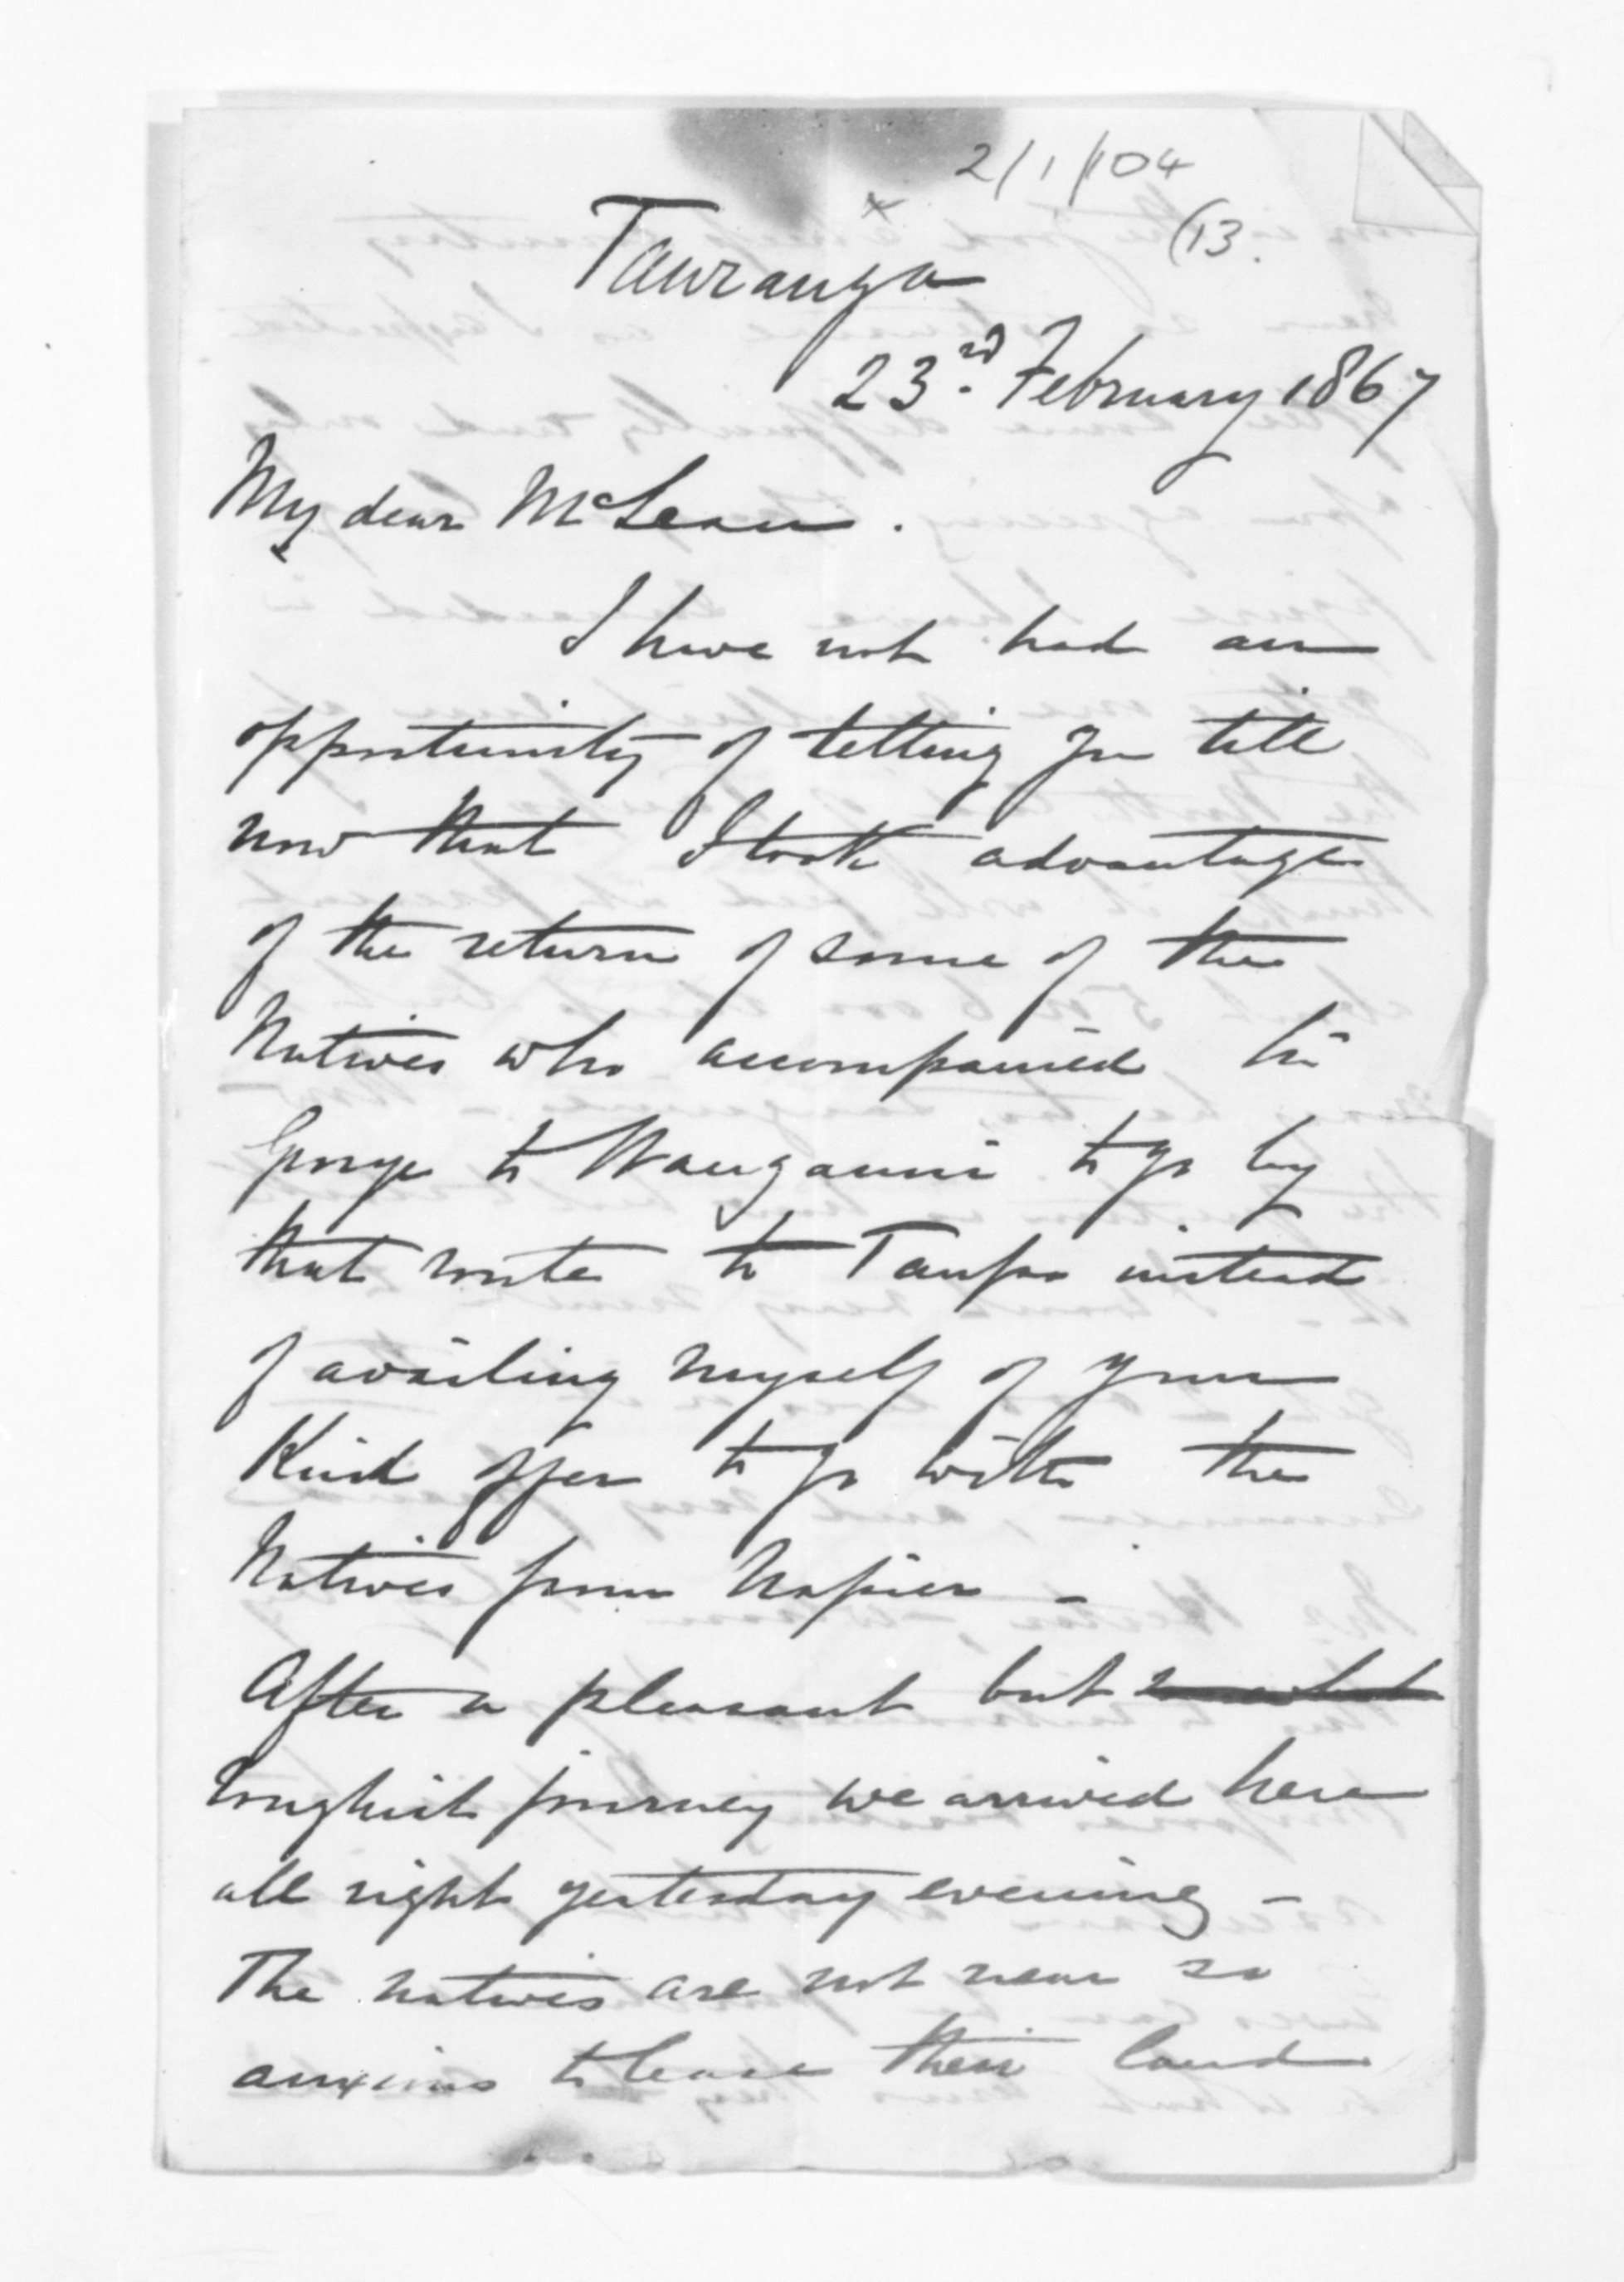 2/1/104
(13.
Tauranga
23.rd February 1867
My dear McLean.
I have not had an
opportunity of telling you till
now that I took advantage
of the return of some of the
Natives who accompanied Sir
George to Wanganui to go by
that route to Taupo instead
of availing myself of your
Kind offer to go with the
Natives from Napier -
After a pleasant but somewhat
roughish journey we arrived here
all right yesterday evening -
The natives are not near so
anxious to lease their land